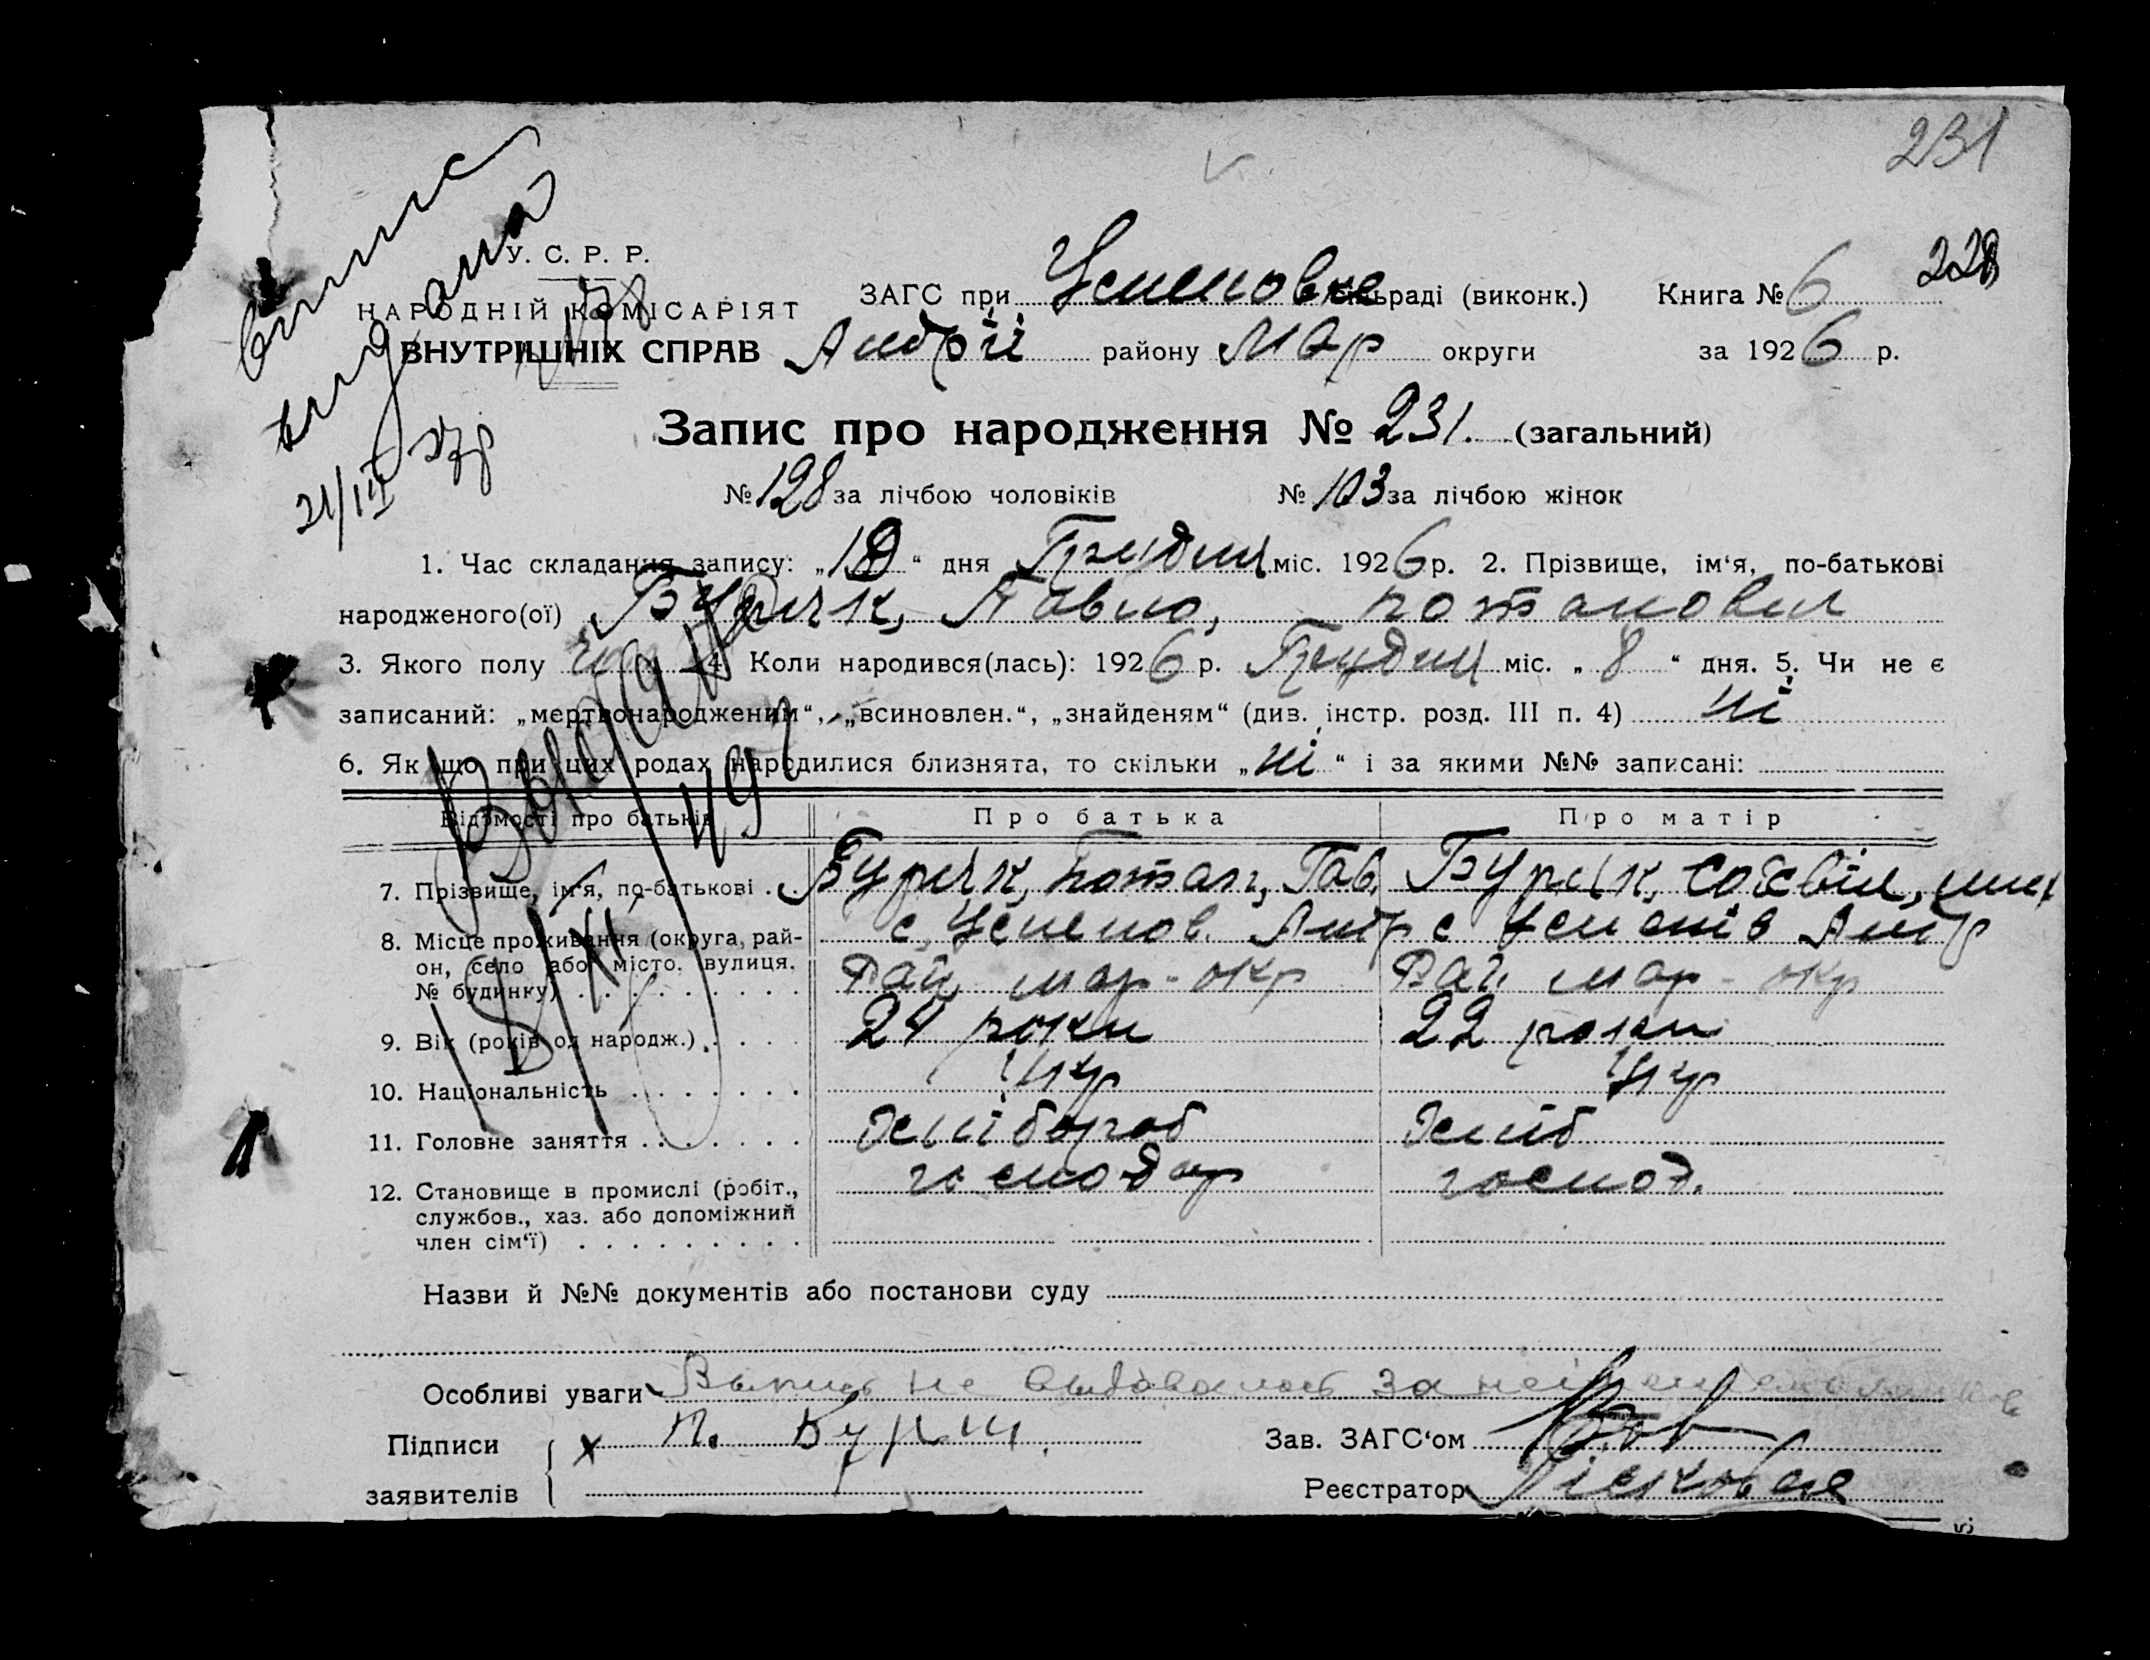 231
228
випис
видана
21/III 27р
У. С. Р. Р.
НАРОДНІЙ КОМІСАРІЯТ
ВНУТРІШНІХ СПРАВ
ЗАГС при Успеновке сільраді (виконк.) Книга № 6
Андрії району Мар округи за 1926 р.
Запис про народження № 231. (загальний)
№ 128 за лічбою чоловіків № 103 за лічбою жінок
1. Час складання запису: „ “ дня Грудня міс. 1926 р. 2. Прізвище, ім‘я, по-батькові
народженого(ої) Буряк, Павло, Потапович
3. Якого полу 4. Коли народився(лась): 1926 р. Грудня міс. „ 8 “ дня. 5. Чи не є
записаний: „мертвонародженим“, „всиновлен.“, „знайденям“ (див. інстр. розд. III п. 4) ні
6. Як що при цих родах народилися близнята, то скільки „ні“ і за якими №№ записані:
Відомості про батьків Про батька Про матір
7. Прізвище, ім‘я, по-батькові . Буряк, Потап, Гав. Буряк,
8. Місце проживання (округа, рай- с. Успенов. Андр с Успенів Андр
он, село або місто, вулиця, Рай, мар-окр Рай. мар-окр
№ будинку)
9. Вік (років од народж.) 24 роки 22 роки
10. Національність Укр Укр
11. Головне заняття Хлібороб Хліб
12. Становище в промислі (робіт., господар господ.
службов., хаз. або допоміжний
член сім‘ї)
Назви й №№ документів або постанови суду
Особливі уваги Выпись не выдавалась за
Підписи х П. Буряк Зав. ЗАГС‘ом
заявителів Реєстратор